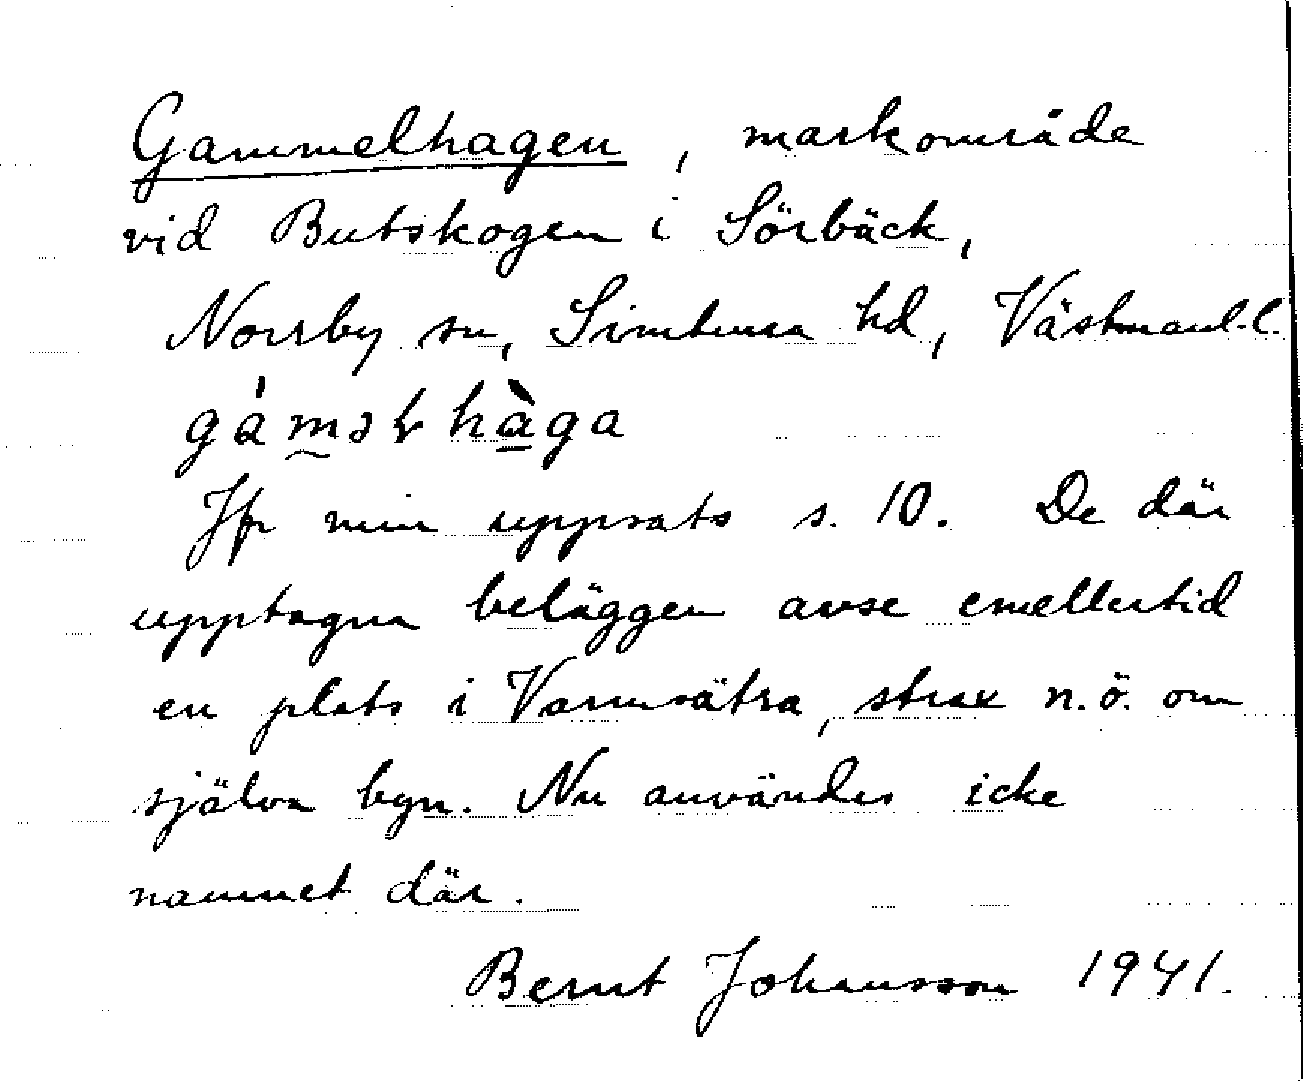 Gammelhagen, markområde
vid Butskogen i Sörbäck,
Norrby sn, Simtuna hd, Västmanl. l.
gàməɫhàga
Jfr min uppsats s. 10. De där
upptagna beläggen avse emellertid
en plats i Varmsätra, strax n.ö. om
själva byn. Nu användes icke
namnet där.
Bernt Johansson 1941.